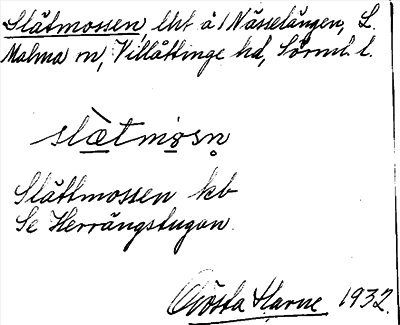 Slätmossen, lht å 1 Nässelängen, L.
Malma sn, Villåttinge hd, Sörml. l.
slætmosn
Slättmossen kb
Se Herrängstugan.
Gösta Harne 1932.